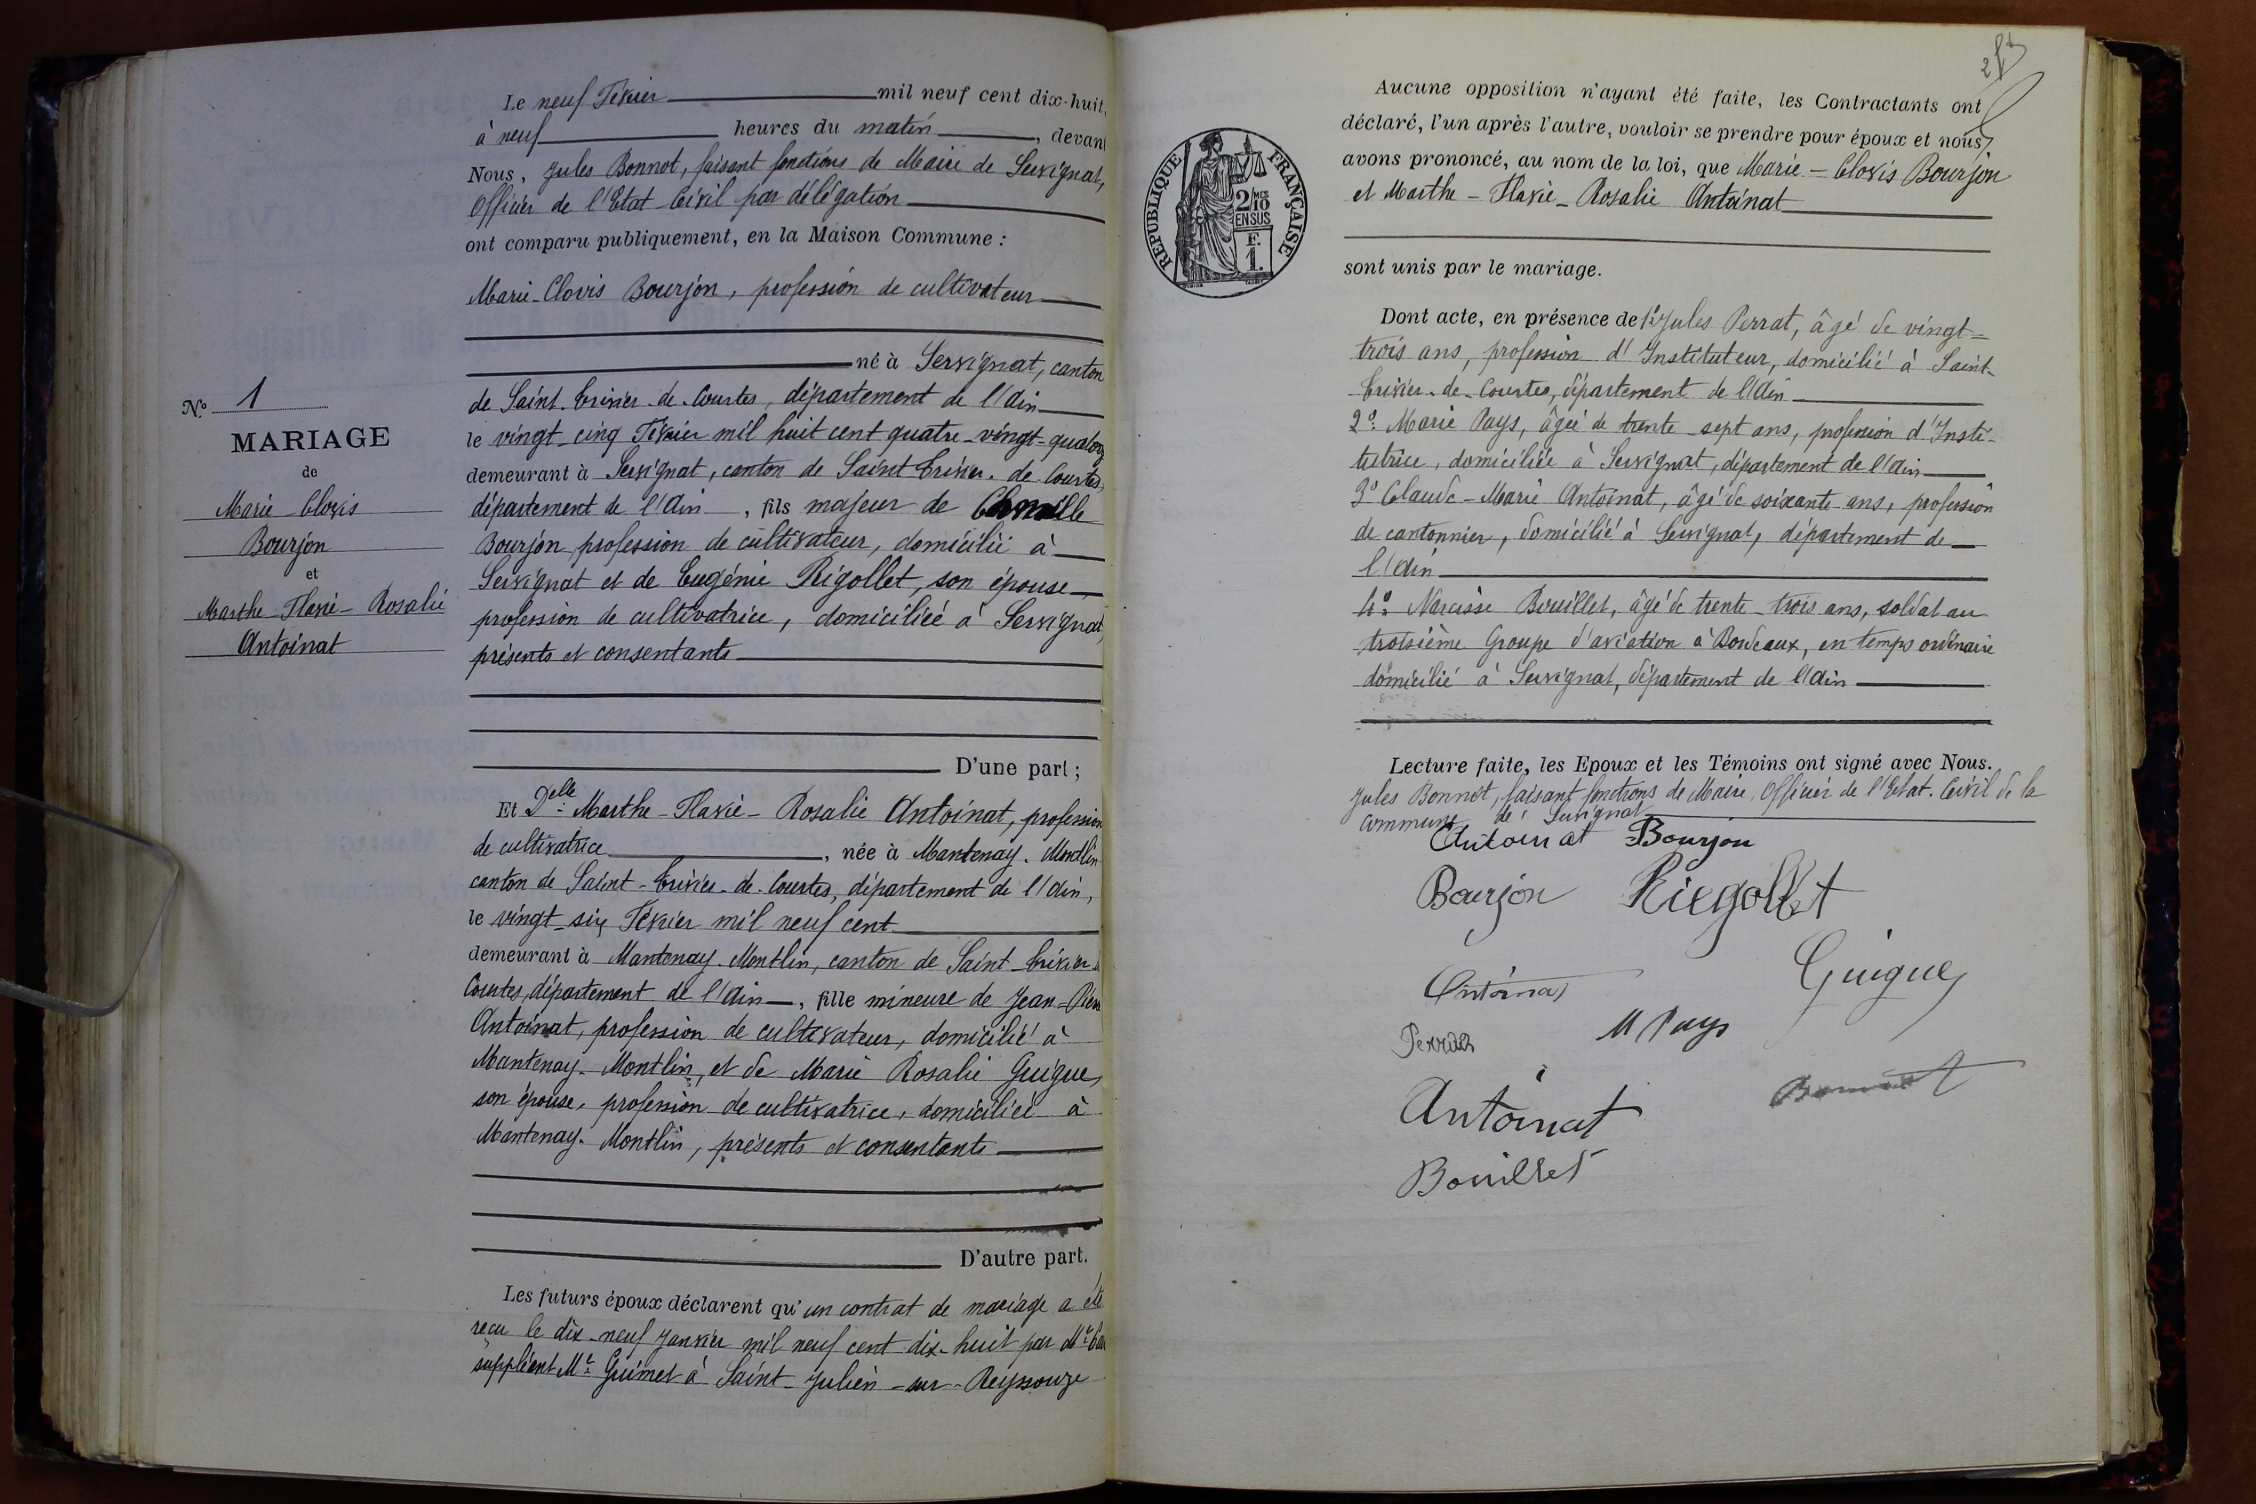 Le neuf Février mil neuf cent dix-huit,
à neuf heures du matin, devant
Nous, Jules Bonnot, faisant fonctions de Maire de Servignat,
Officier de l'Etat-Civil par délégation
ont comparu publiquement, en la Maison Commune :
Marie-Clovis Bourjon, profession de cultivateur
né à Servignat, canton
de Saint-Trivier-de-Courtes, département de l'Ain
le vingt-cinq Février mil huit cent quatre-vingt-quatorze
demeurant à Servignat, canton de Saint Trivier-de-Courtes,
département de l'Ain, fils majeur de Camille
Bourjon profession de cultivateur, domicilié à
Servignat et de Eugénie Rigollet, son épouse
profession de cultivatrice, domiciliée à Servignat,
présents et consentants
D'une part ;
Nº 1
MARIAGE
de
Marie-Clovis
Bourjon
et
Marthe-Flavie-Rosalie
Antoinat
Et Delle Marthe-Flavie-Rosalie Antoinat, profession
de cultivatrice, née à Mantenay-Montlin
canton de Saint-Trivier-de-Courtes, département de l'Ain,
le vingt-six Février mil neuf cent
demeurant à Mantenay-Montlin, canton de Saint-Trivier de
Courtes, département de l'Ain, fille mineure de Jean-Pierre
Antoinat, profession de cultivateur, domicilié à
Mantenay-Montlin, et de Marie Rosalie Guigue,
son épouse, profession de cultivatrice, domiciliée à
Mantenay-Montlin, présents et consentants
D'autre part.
Les futurs époux déclarent qu'un contrat de mariage a été
reçu le dix-neuf Janvier mil neuf cent dix-huit par Me
suppléant Me Guimet à Saint-Julien-sur-Reyssouze
Aucune opposition n'ayant été faite, les Contractants ont
déclaré, l'un après l'autre, vouloir se prendre pour époux et nous
avons prononcé, au nom de la loi, que Marie-Clovis Bourjon
et Marthe-Flavie-Rosalie Antoinat
sont unis par le mariage.
RÉPUBLIQUE FRANÇAISE
2/10
MES
EN SUS
F.
1.
Dont acte, en présence de 1º Jules Perrat, âgé de vingt-
trois ans, profession d'Instituteur, domicilié à Saint-
Trivier-de-Courtes, département de l'Ain
2º Marie Pays, âgée de trente-sept ans, profession d'Insti-
tutrice, domiciliée à Servignat, département de l'Ain
3º Claude-Marie Antoinat, âgé de soixante ans, profession
de cantonnier, domicilié à Servignat, département de
l'Ain
4º Narcisse Bouillet, âgé de trente-trois ans, soldat au
troisième Groupe d'aviation à Bordeaux, en temps ordinaire
domicilié à Servignat, département de l'Ain
Lecture faite, les Epoux et les Témoins ont signé avec Nous.
Jules Bonnot, faisant fonctions de Maire, Officier de l'Etat-Civil de la
commune de Servignat
Antoinat Bourjon
Bourjon Riegollet
Antoinat Guigue
Perrat M Pays
Antoinat Bonnot
Bouillet